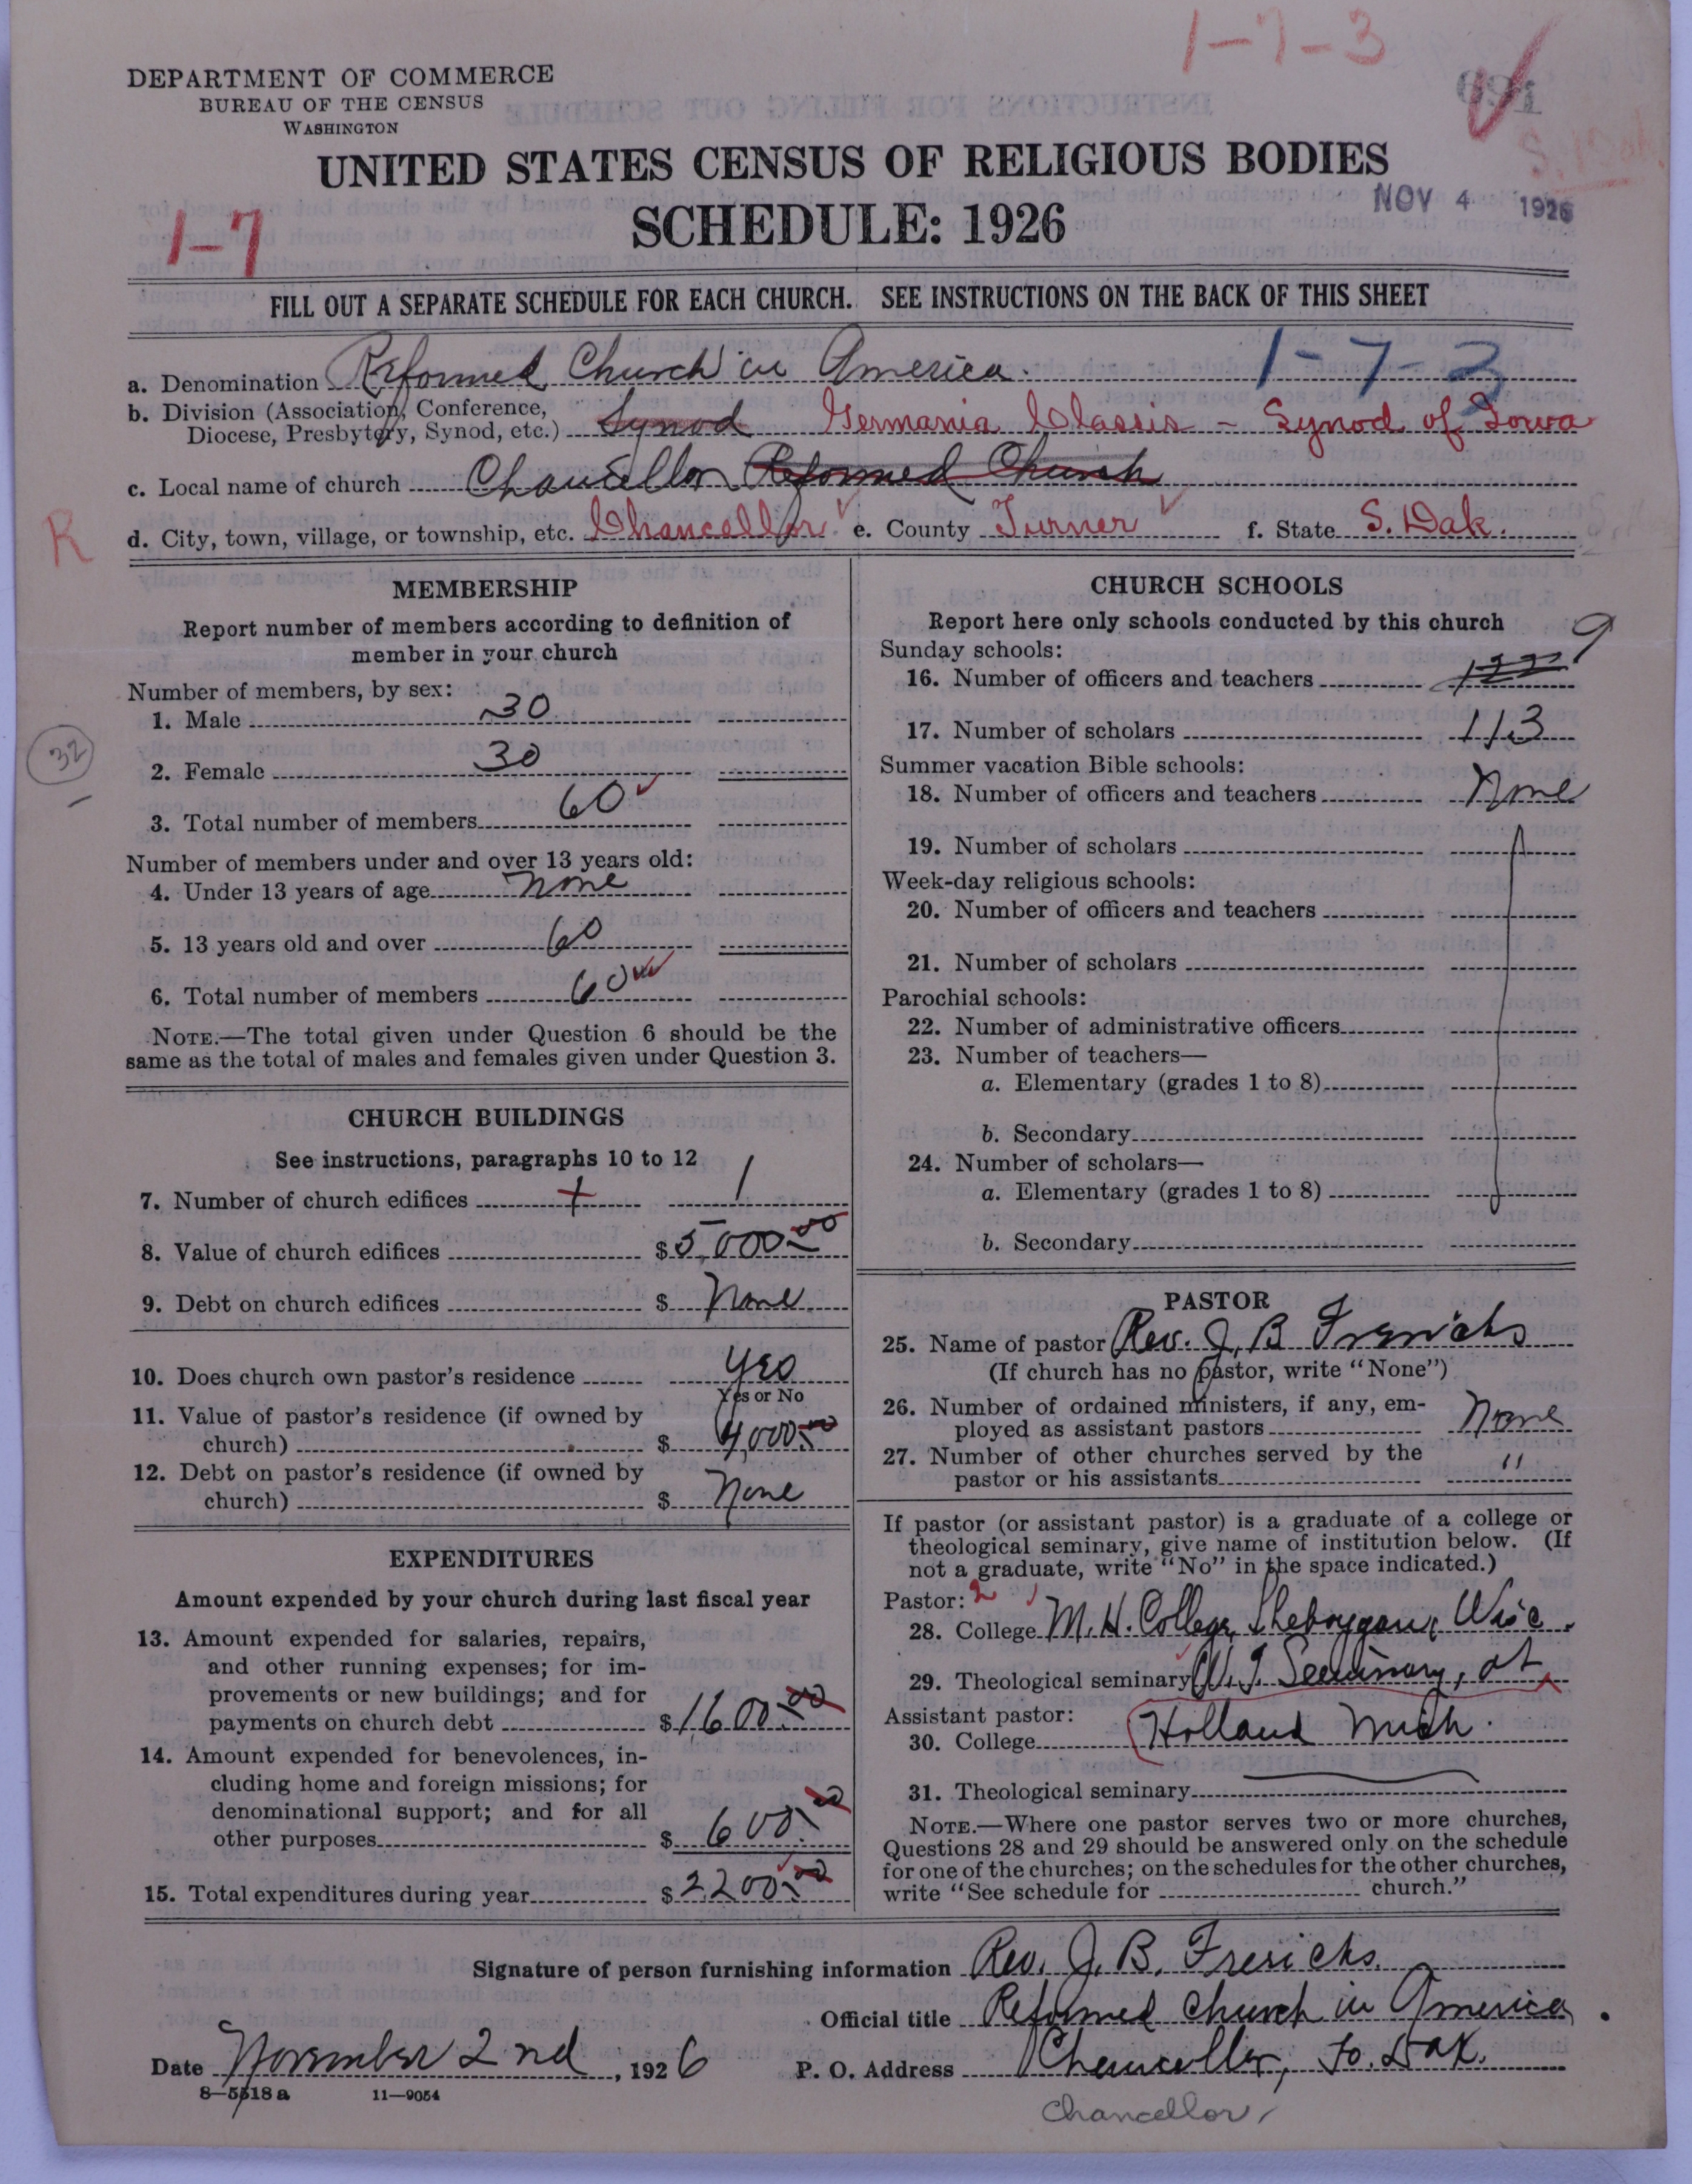 1-7-3
DEPARTMENT OF COMMERCE
BUREAU OF THE CENSUS
WASHINGTON
691
S. Dak
UNITED STATES CENSUS OF RELIGIOUS BODIES
NOV 4 1926
1-7
SCHEDULE: 1926
FILL OUT A SEPARATE SCHEDULE FOR EACH CHURCH. SEE INSTRUCTIONS ON THE BACK OF THIS SHEET
a. Denomination Reformed Church in America. 1-7-3
b. Division (Association, Conference,
Diocese, Presbytery, Synod, etc.) Synod Germania Classis - Synod of Iowa
c. Local name of church Chancellor Reformed Church
R
d. City, town, village, or township, etc. Chancellor e. County Turner f. State S. Dak.
MEMBERSHIP
Report number of members according to definition of
member in your church
Number of members, by sex:
1. Male 30
32
2. Female 30
3. Total number of members 60
Number of members under and over 13 years old:
4. Under 13 years of age None
5. 13 years old and over 60
6. Total number of members 60
NOTE.—The total given under Question 6 should be the
same as the total of males and females given under Question 3.
CHURCH BUILDINGS
See instructions, paragraphs 10 to 12
7. Number of church edifices 1
8. Value of church edifices $5,000.00
9. Debt on church edifices $ None
10. Does church own pastor's residence yes
Yes or No
11. Value of pastor's residence (if owned by
church) $ 4,000.00
12. Debt on pastor's residence (if owned by
church) $ None
EXPENDITURES
Amount expended by your church during last fiscal year
13. Amount expended for salaries, repairs,
and other running expenses; for im-
provements or new buildings; and for
payments on church debt $1600.00
14. Amount expended for benevolences, in-
cluding home and foreign missions; for
denominational support; and for all
other purposes $ 600.00
15. Total expenditures during year $2200.00
CHURCH SCHOOLS
Report here only schools conducted by this church
Sunday schools:
16. Number of officers and teachers 9
17. Number of scholars 113
Summer vacation Bible schools:
18. Number of officers and teachers None
19. Number of scholars
Week-day religious schools:
20. Number of officers and teachers
21. Number of scholars
Parochial schools:
22. Number of administrative officers
23. Number of teachers—
a. Elementary (grades 1 to 8)
b. Secondary
24. Number of scholars—
a. Elementary (grades 1 to 8)
b. Secondary
PASTOR
25. Name of pastor Rev. J. B Frerichs
(If church has no pastor, write "None")
26. Number of ordained ministers, if any, em-
ployed as assistant pastors None
27. Number of other churches served by the
pastor or his assistants "
If pastor (or assistant pastor) is a graduate of a college or
theological seminary, give name of institution below. (If
not a graduate, write "No" in the space indicated.)
Pastor: 2
28. College M. H. College, Sheboygan, Wisc.
29. Theological seminary W. T. Seminary, at
Assistant pastor:
30. College Holland Mich.
31. Theological seminary
NOTE.—Where one pastor serves two or more churches,
Questions 28 and 29 should be answered only on the schedule
for one of the churches; on the schedules for the other churches,
write "See schedule for church."
Signature of person furnishing information Rev. J. B. Frerichs.
Official title Reformed Church in America.
Date November 2nd, 1926 P. O. Address Chancellor, So. Dak.
8-5518 a 11-9054
Chancellor